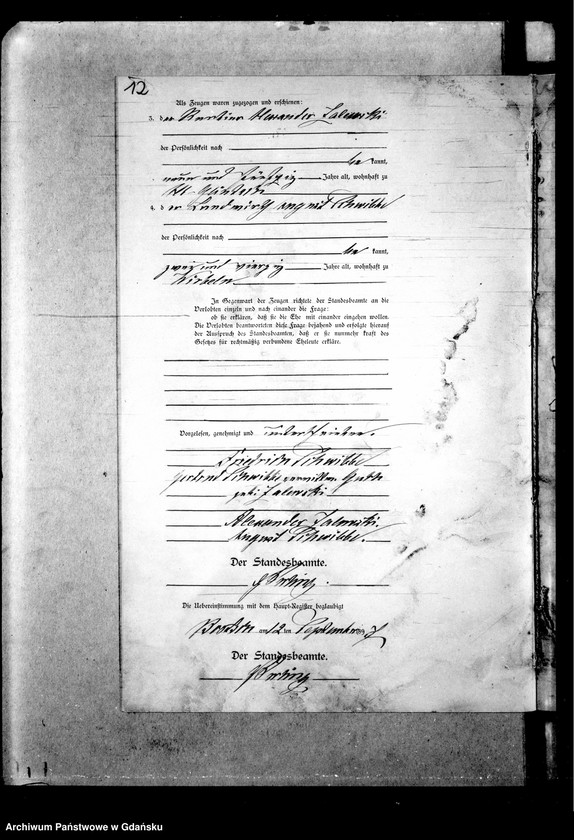 12
Als Zeugen waren zugezogen und erschienen:
3. der Rentier Alexander Zalewski
der Persönlichkeit nach
be kannt,
neun und fünfzig Jahre alt, wohnhaft zu
4. der Landwirth August Schwibbe
der Persönlichkeit nach
be kannt,
zwei und vierzig Jahre alt, wohnhaft zu
In Gegenwart der Zeugen richtete der Standesbeamte an die
Verlobten einzeln und nach einander die Frage:
ob sie erklären, daß sie die Ehe mit einander eingehen wollen.
Die Verlobten beantworteten diese Frage bejahend und erfolgte hierauf
der Ausspruch des Standesbeamten, daß er sie nunmehr kraft des
Gesetzes für rechtmäßig verbundene Eheleute erkläre.
Vorgelesen, genehmigt und unterschrieben.
Friedrich Schwibbe
Schwibbe
Zalewski
Alexander Zalewski.
August Schwibbe.
Der Standesbeamte.
Die Uebereinstimmung mit dem Haupt-Register beglaubigt
am 12 ten September
Der Standesbeamte.
Archiwum Państwowe w Gdańsku